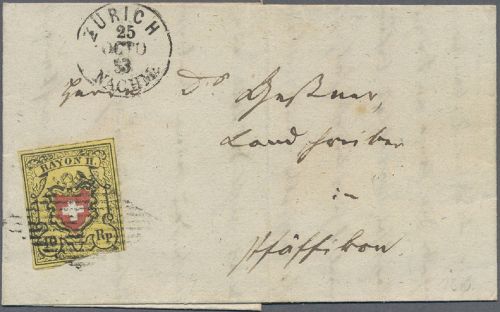 ZÜRICH
25
OCTO
53
NACHM.
Herrn Dr Geßner,
Landschreiber
in
Pfäffikon.
RAYON II.
10 Rp.